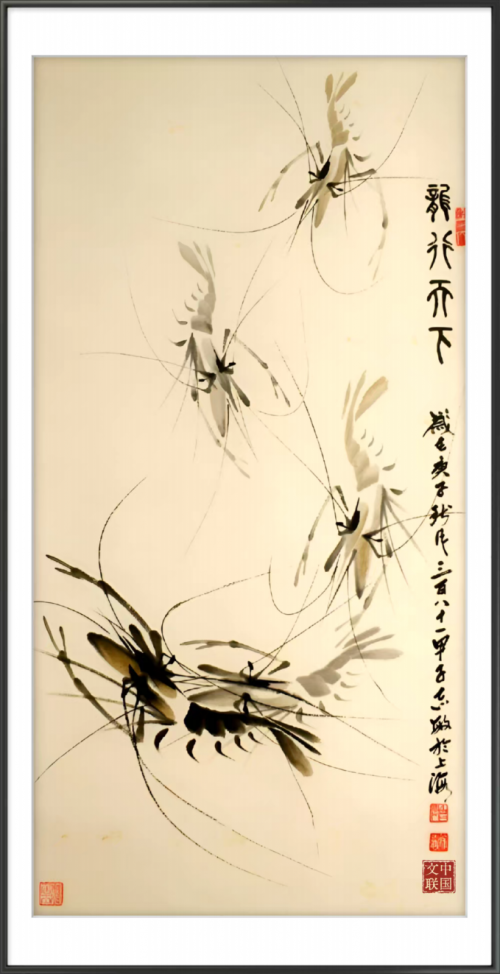 龍行天下
歲在庚子秋月三百八十一甲子敏於上海
中国
文联